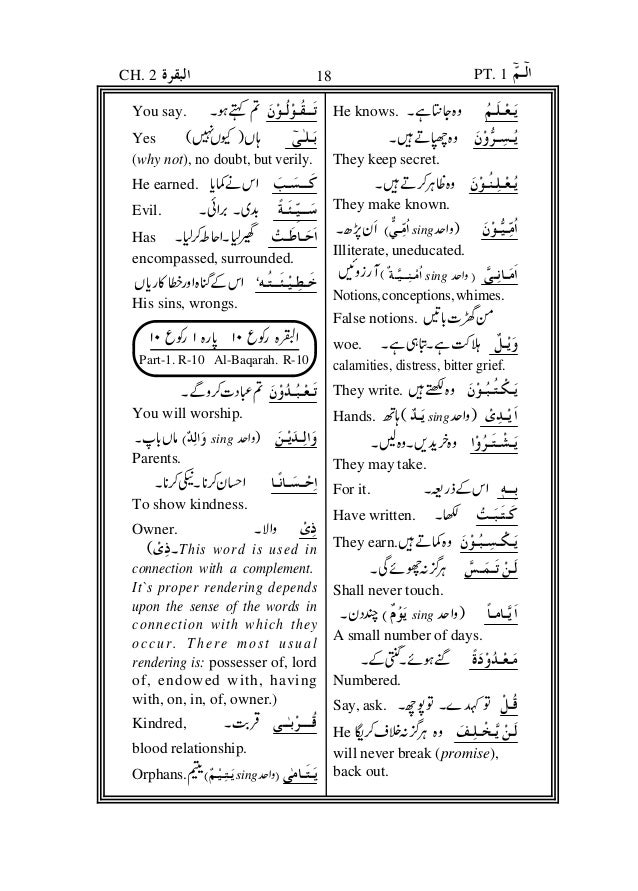 CH. 2 البقرة 18 PT. 1 الٓمّٓ
He knows. وہ جانتا ہے۔ يَعْلَمُ
وہ چھپاتے ہیں۔ يُسِرُّوْنَ
They keep secret.
وہ ظاہر کرتے ہیں۔ يُعْلِنُوْنَ
They make known.
اُمِّيُّوْنَ (واحد sing اُمِّيٌّ) اَن پڑھ۔
Illiterate, uneducated.
اَمَانِيَّ (واحد sing اُمْنِيَّةٌ) آرزوئیں
Notions, conceptions, whimes.
False notions. من گھڑت باتیں
woe. ہلاکت ہے۔ تباہی ہے۔ وَيْلٌ
calamities, distress, bitter grief.
They write. وہ لکھتے ہیں يَكْتُبُوْنَ
Hands. اَيْدِىْ (واحد sing يَدٌ) ہاتھ
وہ خریدیں۔ وہ لیں۔ يَشْتَرُوْا
They may take.
For it. اس کے ذریعہ۔ بِهٖ
Have written. لکھا۔ كَتَبَتْ
They earn. وہ کماتے ہیں يَكْسِبُوْنَ
ہرگز نہ چھوئے گی۔ لَنْ تَمَسَّ
Shall never touch.
اَيَّاماً (واحد sing يَوْمٌ) چند دن۔
A small number of days.
گنے ہوئے۔ گنتی کے۔ مَعْدُوْدَةً
Numbered.
Say, ask. تو کہدے۔ تو پوچھ۔ قُلْ
He وہ ہرگز نہ خلاف کریگا لَنْ يُّخْلِفَ
will never break (promise),
back out.
You say. تم کہتے ہو۔ تَقُوْلُوْنَ
Yes ہاں (کیوں نہیں) بَلٰى
(why not), no doubt, but verily.
He earned. اس نے کمایا كَسَبَ
Evil. بدی۔ برائی۔ سَيِّئَةً
Has گھیر لیا۔ احاطہ کر لیا۔ اَحَاطَتْ
encompassed, surrounded.
اس کے گناہ اور خطا کاریاں خَطِيْئَتُهٗ
His sins, wrongs.
البقرہ رکوع ۱۰ پارہ ۱ رکوع ۱۰
Part-1. R-10 Al-Baqarah. R-10
تم عبادت کرو گے۔ تَعْبُدُوْنَ
You will worship.
وَالِدَيْنَ (واحد sing وَالِدٌ) ماں باپ۔
Parents.
احسان کرنا۔ نیکی کرنا۔ اِحْسَانًا
To show kindness.
Owner. والا۔ ذِىْ
(ذِىْ۔ This word is used in
connection with a complement.
It`s proper rendering depends
upon the sense of the words in
connection with which they
occur. There most usual
rendering is: possesser of, lord
of, endowed with, having
with, on, in, of, owner.)
Kindred, قربت۔ قُرْبٰى
blood relationship.
Orphans. يَتَامٰى (واحد sing يَتِيْمٌ) یتیم